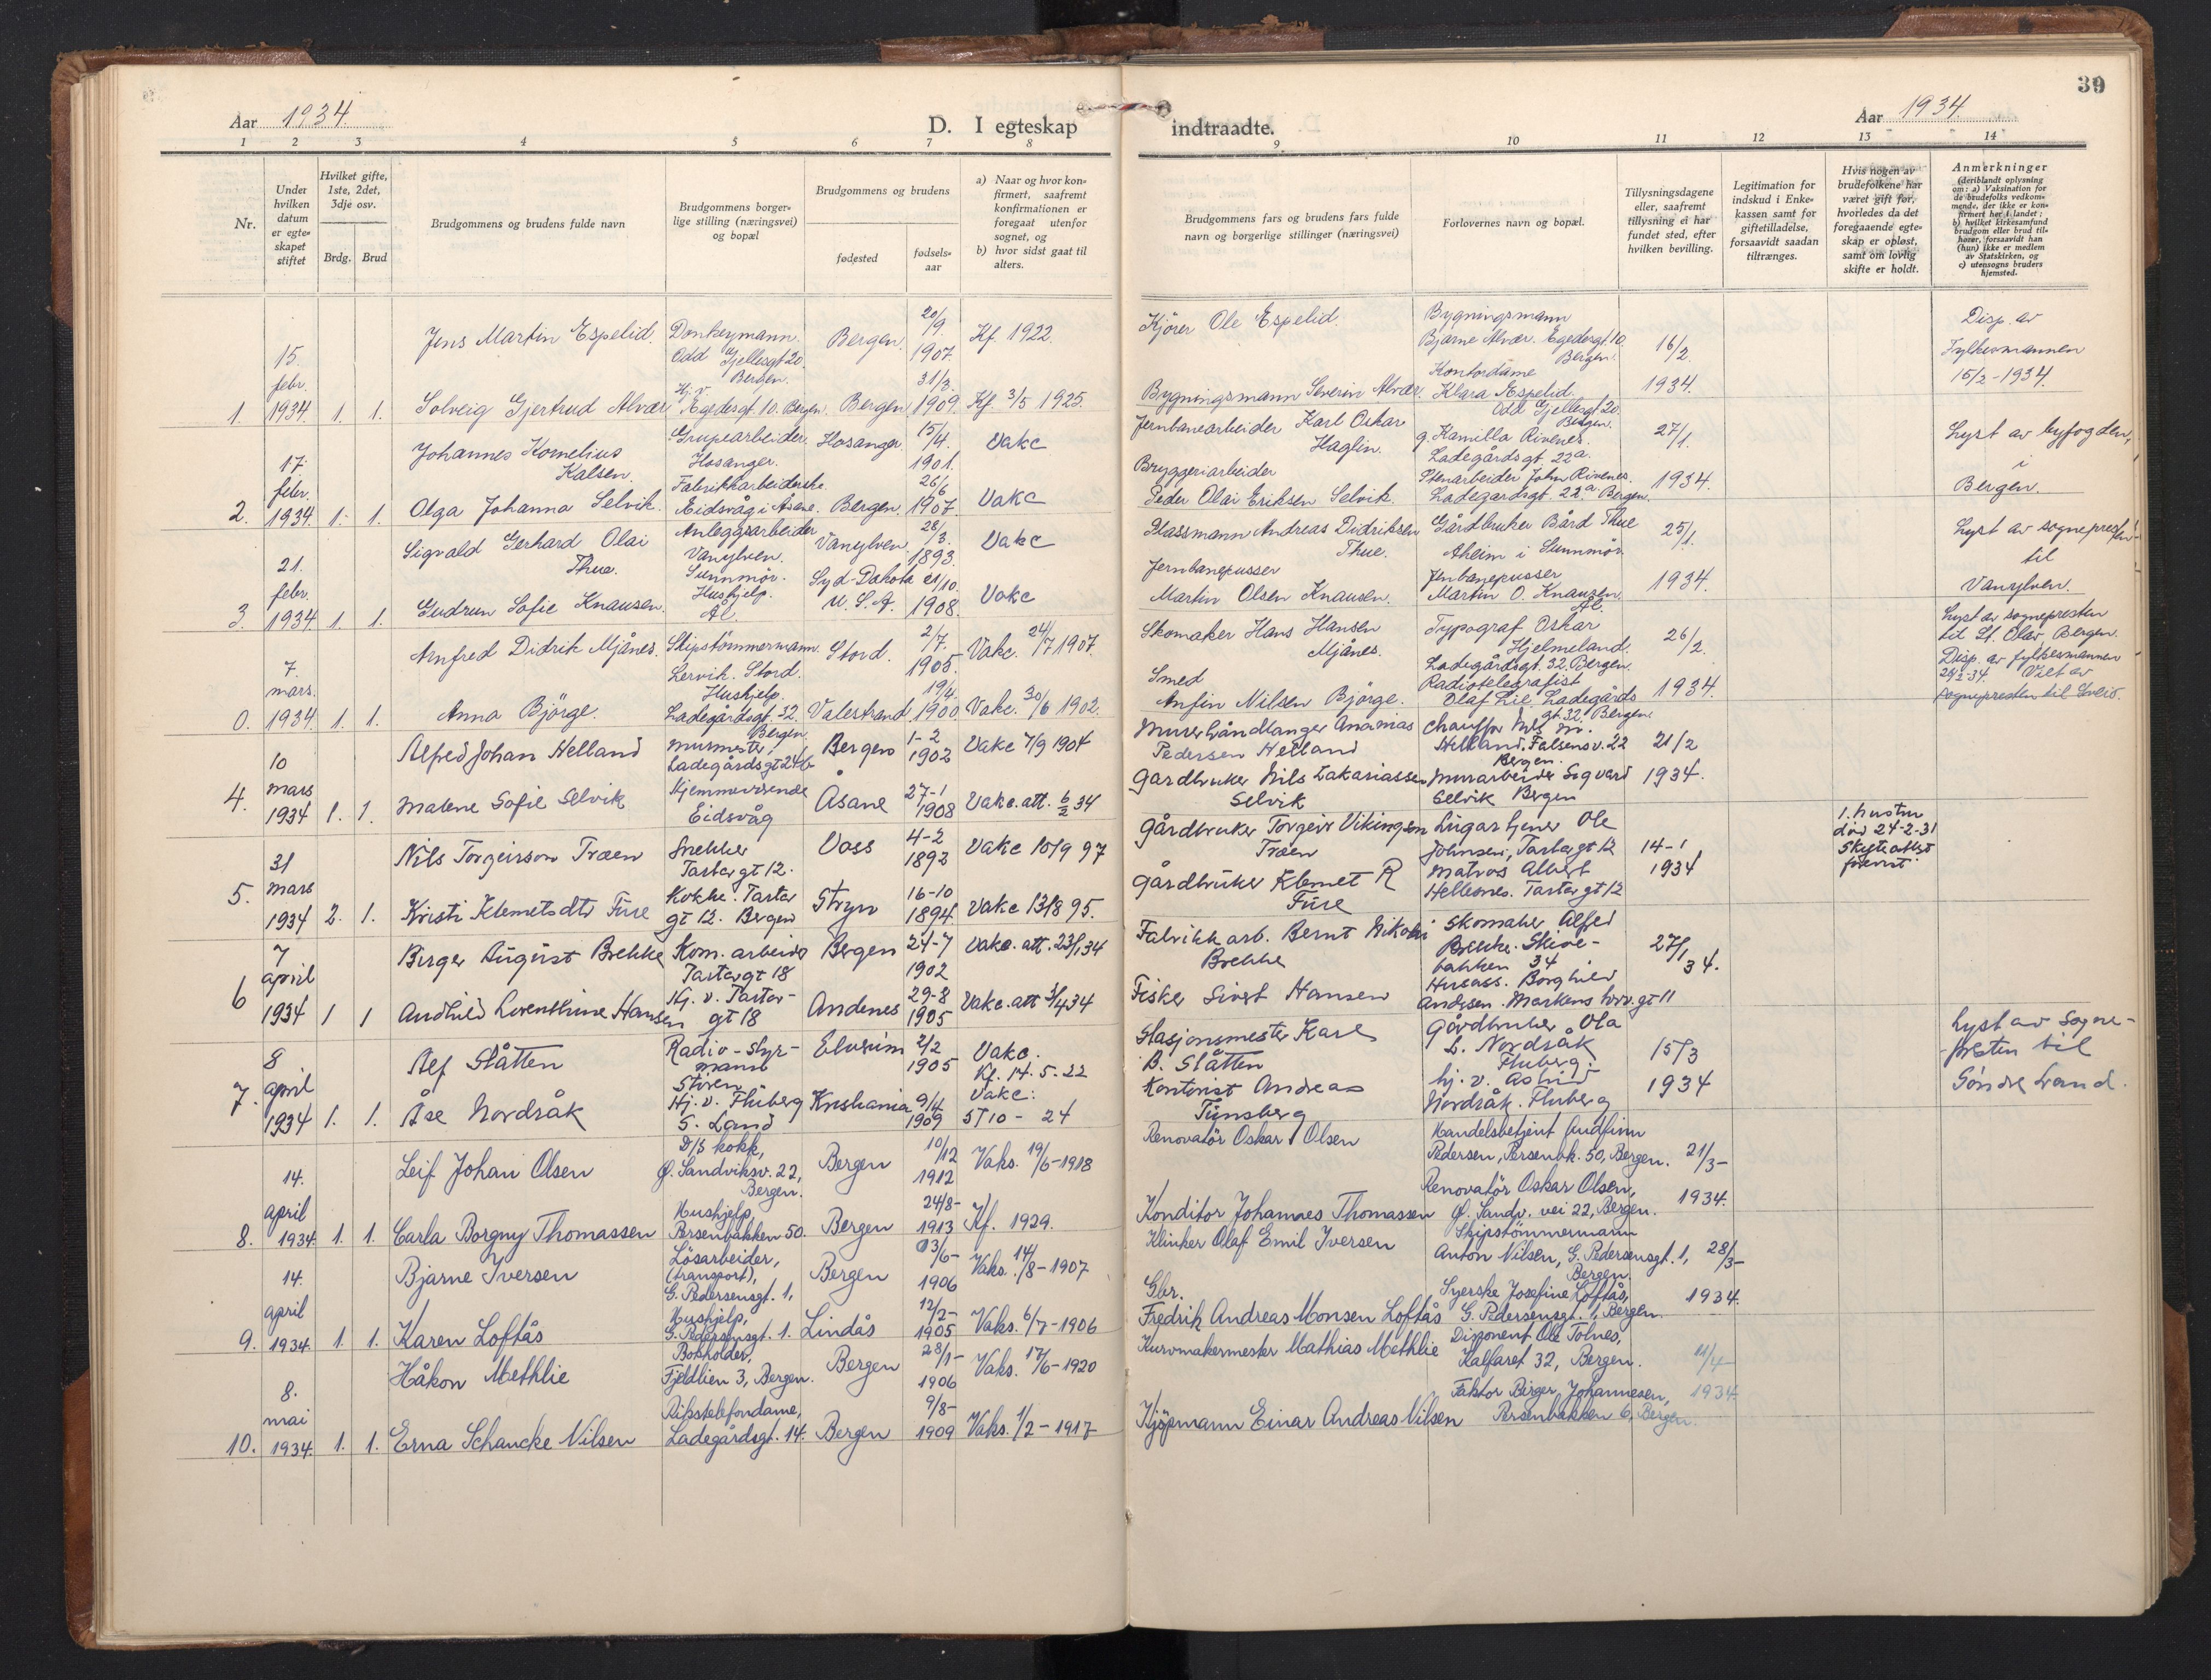 39
Aar 1934
D. I egteskap
indtraadte.
Aar 1934
1 2 3 4 5 6 7 8 9 10 11 12 13 14
Nr.
Under hvilken datum er egte-skapet stiftet
Hvilket gifte, 1ste, 2det, 3dje osv.
Brdg. Brud
Brudgommens og brudens fulde navn
Brudgommens borger-lige stilling (næringsvei) og bopæl
Brudgommens og brudens
fødested
fødsels-aar
a) Naar og hvor kon-firmert, saafremt konfirmationen er foregaat utenfor sognet, og
b) hvor sidst gaat til alters.
Brudgommens fars og brudens fars fulde navn og borgerlige stillinger (næringsvei)
Forlovernes navn og bopæl.
Tillysningsdagene eller, saafremt tillysning ei har fundet sted, efter hvilken bevilling.
Legitimation for indskud i Enke-kassen samt for giftetilladelse, forsaavidt saadan tiltrænges.
Hvis nogen av brudefolkene har været gift før, hvorledes da det foregaaende egte-skap er opløst, samt om lovlig skifte er holdt.
Anmerkninger
(deriblandt oplysning om: a) Vaksination for de brudefolks vedkom-mende, der ikke er kon-firmert her i landet; b) hvilket kirkesamfund brudgom eller brud til-hører, forsaavidt han (hun) ikke er medlem av Statskirken, og c) utensogns bruders hjemsted.
1. 15. febr. 1934. 1. 1.
Jens Martin Espelid. Donkeymann. Odd Gjellesgt 20. Bergen. Bergen. 20/9. 1907. Kf. 1922.
Kjörer Ole Espelid. Bygningsmann Bjarne Alvær. Egedesgt. 10 Bergen. 16/2.
Disp. av Fylkesmannen 15/2-1934.
Solveig Gjertrud Alvær Hj. v. Egedesgt. 10. Bergen. Bergen 31/3. 1909. Kf. 3/5 1925.
Bygningsmann Severin Alvær. Kontordame Klara Espelid. Odd Gjellesgt 20. Bergen. 1934.
2. 17. febr. 1934. 1. 1.
Johannes Kornelius Kalsen. Grupearbeider. Hosanger. Hosanger 15/4. 1901. Vakc
Jernbanearbeider Karl Oskar Haglin. g. Kamilla Rivenes. Ladegårdsgt. 22a. 27/1.
Lyst av byfogden, i Bergen.
Olga Johanna Selvik. Fabrikkarbeiderske. Eidsvåg i Åsane. Bergen. 26/6 1907. Vakc
Bryggeriarbeider Peder Olai Eriksen Selvik. Stenarbeider John Rivenes. Ladegardsgt. 22a Bergen. 1934.
3. 21. febr. 1934 1. 1.
Sigvald Gerhard Olai Thue. Anleggsarbeider Vanylven. Sunnmör. Vanylven. 28/3. 1893. Vakc
Plassmann Andreas Didriksen Thue. Gårdbruker Bård Thue Aheim i Sunnmör. 25/1.
Lyst av sognepresten til Vanylven.
Gudrun Sofie Knausen. Hushjelp. Ål. Syd-Dakota U.S.A. 21/10. 1908. Vakc
Jernbanepusser Martin Olsen Knausen. Jernbanepusser Martin O. Knausen Ål. 1934.
0. 7. mars. 1934. 1. 1.
Arnfred Didrik Mjånes. Skipstömmermann. Lervik. Stord. Stord. 2/7. 1905. Vakc. 24/7 1907.
Skomaker Hans Hansen Mjånes. Typograf Oskar Hjelmeland. Ladegårdsgt. 32. Bergen. 26/2.
Lyst av sognepresten til St. Olav, Bergen. Disp. av fylkesmannen 24/2-34. Viet av sognepresten til Sveio.
Anna Björge. Hushjelp. Ladegårdsgt. 32. Bergen. Valestrand 19/4. 1900. Vakc. 30/6 1902.
Smed Anfin Nilsen Björge. Radiotelegrafist Olaf Lie. Ladegårds gt. 32. Bergen. 1934.
4. 10 mars 1934 1. 1.
Alfred Johan Helland murmester. Ladegårdsgt 24b Bergen 1-2 1902 Vakc 7/9 1904
Murerhåndlanger Ananias Pedersen Helland Chauffør Nils M. Helland. Falsensv. 22 Bergen. 21/2
Malene Sofie Selvik Hjemmeværende Eidsvåg Åsane 27-1 1908 Vakc. att. 6/2 34
Gardbruker Nils Zakariassen Selvik Murarbeider Sigvard Selvik Bergen 1934.
5. 31 mars 1934 2. 1.
Nils Torgeirson Træen Snekker Tartargt 12. Voss 4-2 1892 Vakc 10/9 97
Gårdbruker Torgeir Vikingsen Træen Lugartjener Ole Johnsen, Tartargt 12 14-1
1. hustru död 24-2-31 Skifteattest forevist.
Kristi Klemetsdtr Fure Kokke. Tartar gt 12. Bergen Stryn 16-10 1894. Vakc 13/8 95.
Gårdbruker Klemet R Fure Matros Albert Hellesnes. Tartargt 12 1934
6 7 april 1934 1 1
Birger August Brekke Kom. arbeider Tartargt 18 Bergen 24-7 1902 Vakc. att. 23/1 34
Fabrikkarb. Bernt Nikolai Brekke Skomaker Alfred Brekke. Skive-bakken 34 27/1 34.
Audhild Lorenthine Hansen Hj. v. Tartar-gt 18 Andenes 29-8 1905 Vakc. att 3/4 34
Fisker Sivert Hansen Husass. Borghild Andersen. Markens gt 11
7. 8 april 1934 1. 1.
Alf Slåtten Radio-styr-mann Stören Elverum 2/2 1905 Vakc. Kf. 14.5.22
Stasjonsmester Karl B. Slåtten Gårdbruker Ola L. Nordsåk Fluberg. 15/3
Lyst av Sogne-presten til Söndre Land.
Åse Nordsåk Hj. v. Fluberg S. Land Kristiania 9/4 1909 Vakc: 5/10-24
Kontorist Andreas Tünsberg hj. v. Astrid Nordsåk. Fluberg 1934
8. 14. april 1934. 1. 1.
Leif Johan Olsen D/S kokk, Ø. Sandviksv. 22, Bergen. Bergen 10/12 1912 Vaks. 19/6-1918
Renovatör Oskar Olsen Handelsbetjent Gudfinn Pedersen, Persenbk. 50, Bergen. 21/3-
Carla Borgny Thomassen Hushjelp, Persenbakken 50. Bergen 24/8- 1913 Kf. 1929.
Konditor Johannes Thomassen Renovatör Oskar Olsen, Ø. Sandv. vei 22, Bergen. 1934.
9. 14. april 1934 1. 1.
Bjarne Iversen Lösarbeider, (transport), G. Pedersensgt. 1, Bergen 3/6- 1906 Vaks. 14/8-1907
Klinker Olaf Emil Iversen Skipstömmermann Anton Nilsen, G. Pedersensgt. 1, Bergen. 28/3-
Karen Loftås Hushjelp, G. Pedersensgt. 1. Lindås 12/2- 1905 Vaks. 6/7-1906
Gbr. Fredrik Andreas Monsen Loftås Syerske Josefine Loftås, G. Pedersensgt. 1, Bergen. 1934.
10. 8. mai 1934. 1. 1.
Håkon Methlie Bokholder, Fjeldlien 3, Bergen. Bergen 28/1- 1906 Vaks. 17/6-1920
Kurvmakermester Mathias Methlie Disponent Ole Tolnes, Kalfaret 32, Bergen. 11/4-
Erna Schancke Nilsen Rikstelefondame, Ladegårdsgt. 14. Bergen 9/8- 1909 Vaks. 1/2-1917
Kjöpmann Einar Andreas Nilsen Faktor Birger Johannesen, Persenbakken 6, Bergen. 1934.